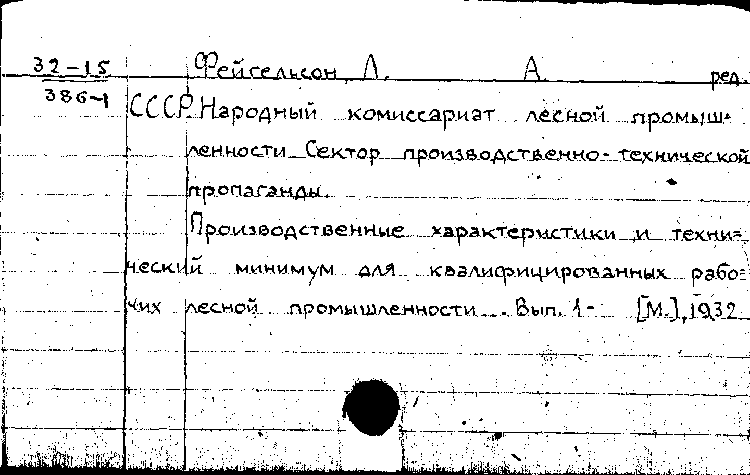 32-15 Фейгельсон, Л. А. ред.
386-1
СССР. Народный комиссариат лесной промыш=
ленности. Сектор производственно-технической
пропаганды.
Производственные характеристики и техни=
ческий минимум для квалифицированных рабо=
чих лесной промышленности... Вып. 1- [М.], 1932